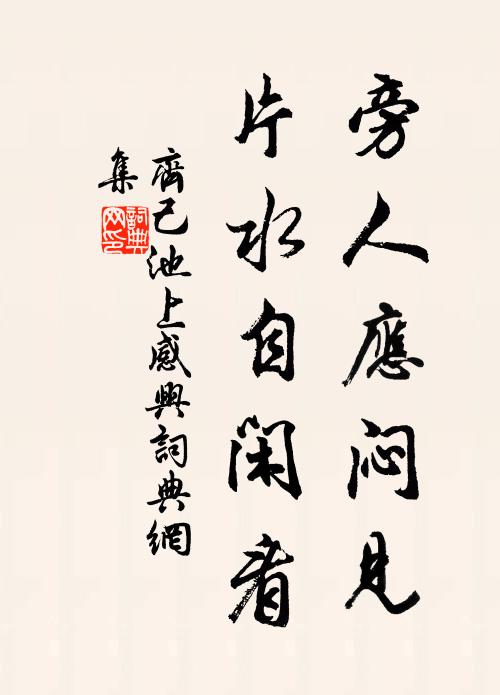 旁人應悶見
片水自閑看
齊己池上感興詞典網
集
詞典
网印